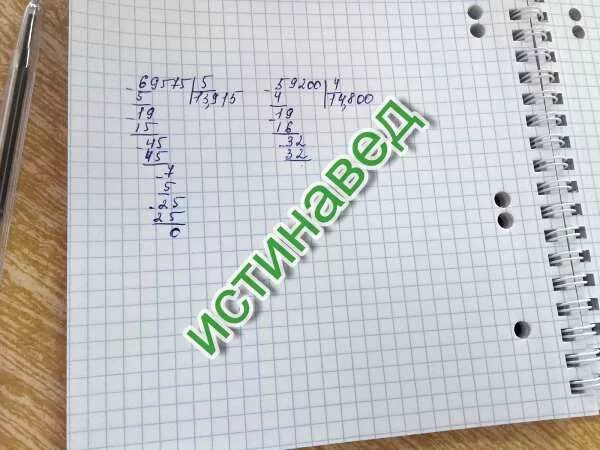 - 69575 | 5
5 | 13,915
- 19
15
- 45
45
- 7
5
- 25
25
0
- 59200 | 4
4 | 14,800
- 19
16
- 32
32
истинавед